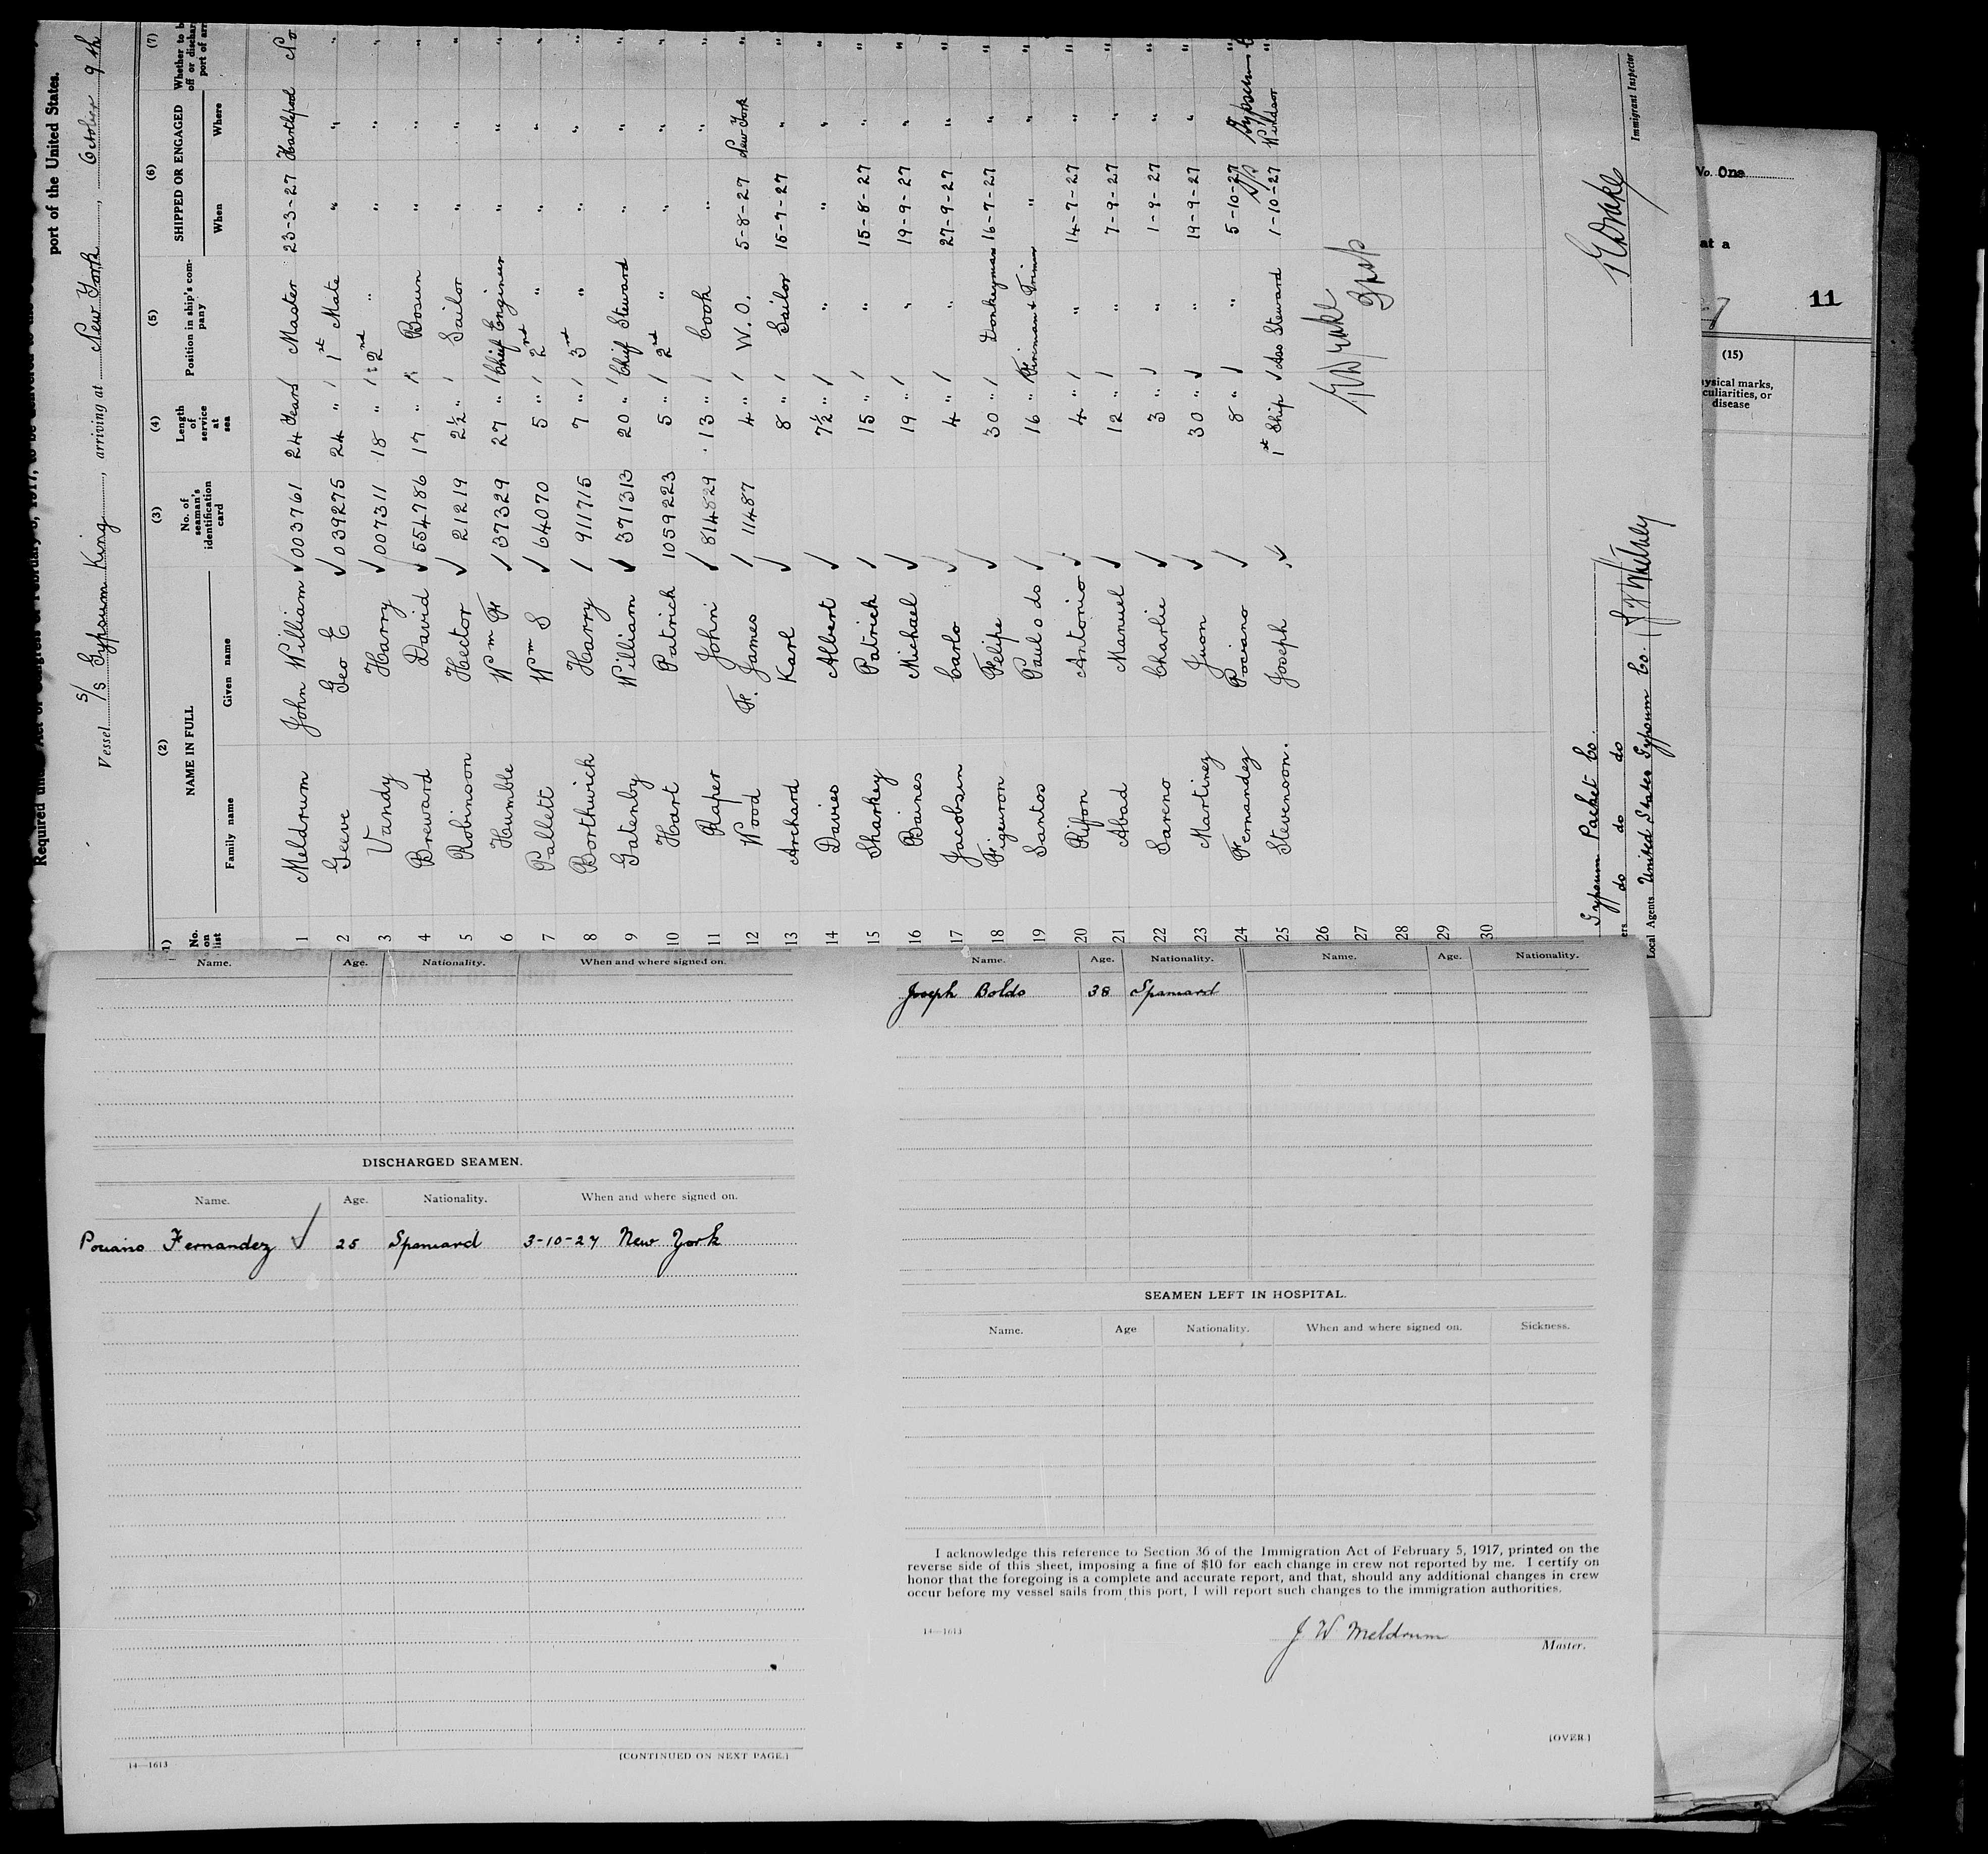 Required under Act of Congress of February 5, 1917, to be delivered to the
port of the United States.
Vessel S/S Gypsum King, arriving at New York, October 9th
(1) (2) (3) (4) (5) (6) (7)
No. on list NAME IN FULL No. of seaman's identification card Length of service at sea Position in ship's company SHIPPED OR ENGAGED Whether to b off or dischar port of arr
Family name Given name When Where
1 Meldrum John William ✓ 003761 24 Years Master 23-3-27 Hartlepool No
2 Geeve Geo E ✓ 039275 24 " 1st Mate " " "
3 Vandy Harry ✓ 007311 18 " 2nd " " " "
4 Breward David ✓ 554786 17 " Bosun " " "
5 Robinson Hector ✓ 21219 2½ " Sailor " " "
6 Humble Wm F ✓ 37329 27 " Chief Engineer " " "
7 Pallett Wm S ✓ 64070 5 " 2nd " " " "
8 Borthwick Harry / 911715 7 " 3rd " " " "
9 Gatenby William ✓ 371313 20 " Chief Steward " " "
10 Hart Patrick 1059223 5 " 2nd " " " "
11 Raper John / 814829 13 " Cook " " "
12 Wood F. James / 11487 4 " W.O. 5-8-27 New York "
13 Archard Karl ✓ 8 " Sailor 15-7-27 " "
14 Davies Albert ✓ 7½ " " " " "
15 Sharkey Patrick / 15 " " 15-8-27 " "
16 Baines Michael ✓ 19 " " 19-9-27 " "
17 Jacobsen Carlo ✓ 4 " " 27-9-27 " "
18 Figeuron Felipe ✓ 30 " Donkeyman 16-7-27 " "
19 Santos Paulo do ✓ 16 " Fireman & Trimmer " " "
20 Rifon Antonio ✓ 4 " " 14-7-27 " "
21 Abad Manuel ✓ 12 " " 7-9-27 " "
22 Sareno Charlie ✓ 3 " " 1-9-27 " "
23 Martinez Juan ✓ 30 " " 19-9-27 " "
24 Fernandez Pociano / 8 " " 5-10-27 " "
25 Stevenson. Joseph ✓ 1st Ship ✓ Ass Steward 1-10-27 Windsor "
26
27
28
29
30
Gypsum Packet Co.
ers do do do do
Local Agents United States Gypsum Co.
Immigrant Inspector
No. One
at a
11
(15)
ysical marks,
culiarities, or
disease
Name. Age. Nationality. When and where signed on.
DISCHARGED SEAMEN.
Name. Age. Nationality. When and where signed on.
Pociano Fernandez ✓ 25 Spaniard 3-10-27 New York
14—1613
[CONTINUED ON NEXT PAGE.]
Name. Age. Nationality. Name. Age. Nationality.
Joseph Bolds 38 Spaniard
SEAMEN LEFT IN HOSPITAL.
Name. Age Nationality. When and where signed on. Sickness.
I acknowledge this reference to Section 36 of the Immigration Act of February 5, 1917, printed on the
reverse side of this sheet, imposing a fine of $10 for each change in crew not reported by me. I certify on
honor that the foregoing is a complete and accurate report, and that, should any additional changes in crew
occur before my vessel sails from this port, I will report such changes to the immigration authorities.
14—1613
J W Meldrum
Master.
[OVER.]